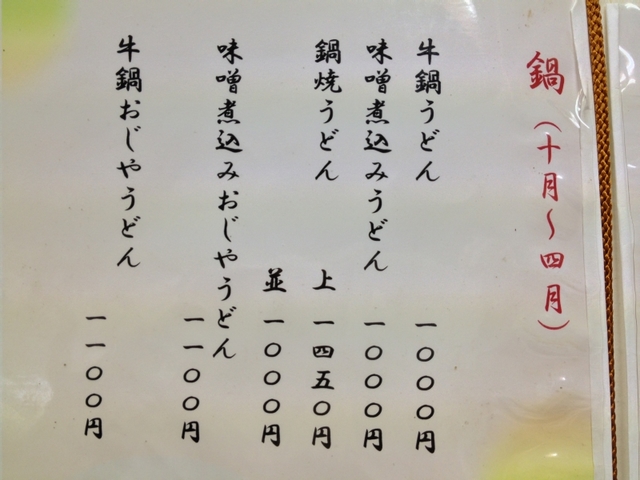 鍋(十月〜四月)
牛鍋うどん 一〇〇〇円
味噌煮込みうどん 一〇〇〇円
鍋焼うどん 上 一四五〇円
並 一〇〇〇円
味噌煮込みおじやうどん 一一〇〇円
牛鍋おじやうどん 一一〇〇円